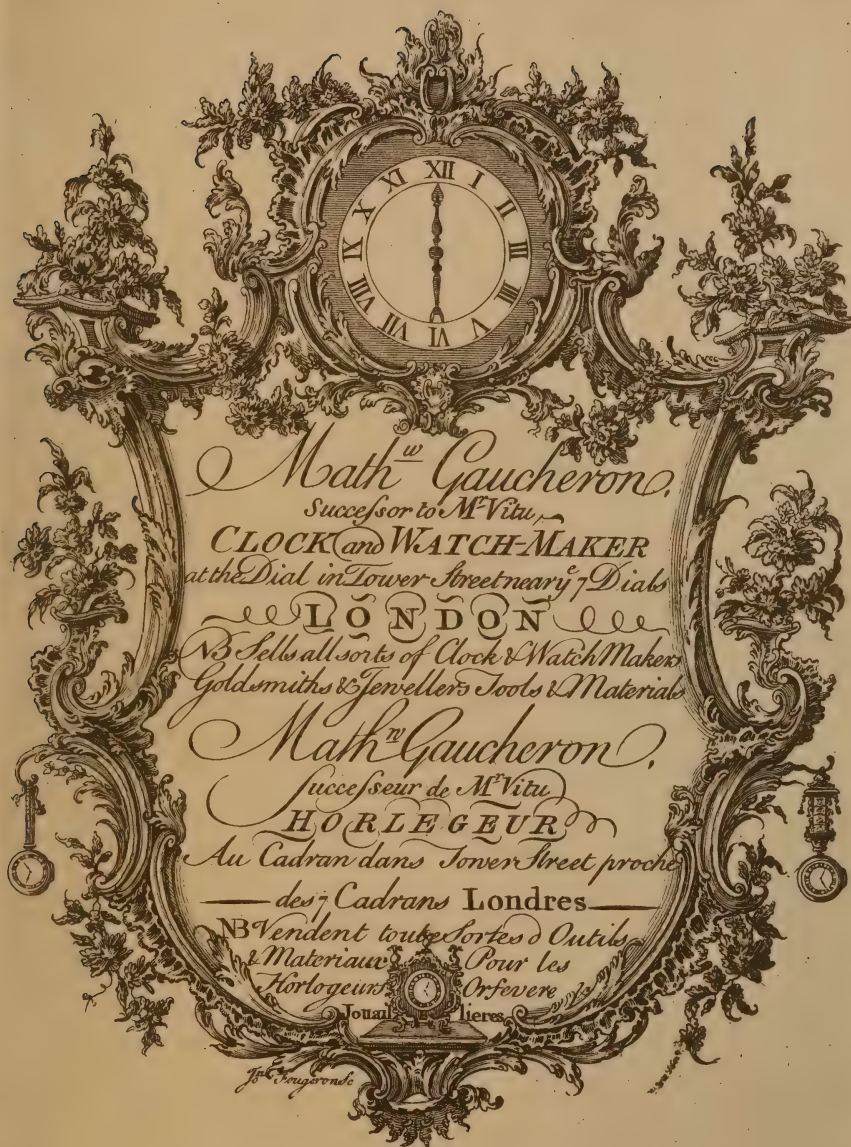 XII I II III IIII V VI VII VIII IX X XI
Math^w Gaucheron,
Succeſsor to M^r Vitu,
CLOCK and WATCH-MAKER
at the Dial in Tower Street near y^e 7 Dials
LONDON
NB Sells all sorts of Clock & Watch Makers
Goldsmiths & Jewellers Tools & Materials
Math^w Gaucheron,
ſucceſseur de M^r Vitu
HORLEGEUR
Au Cadran dans Tower Street proche
des 7 Cadrans Londres
NB Vendent toute Sortes d Outils
& Materiaux Pour les
Horlogeurs Orfevere
Jouail lieres
Jn^o Fougeron Sc